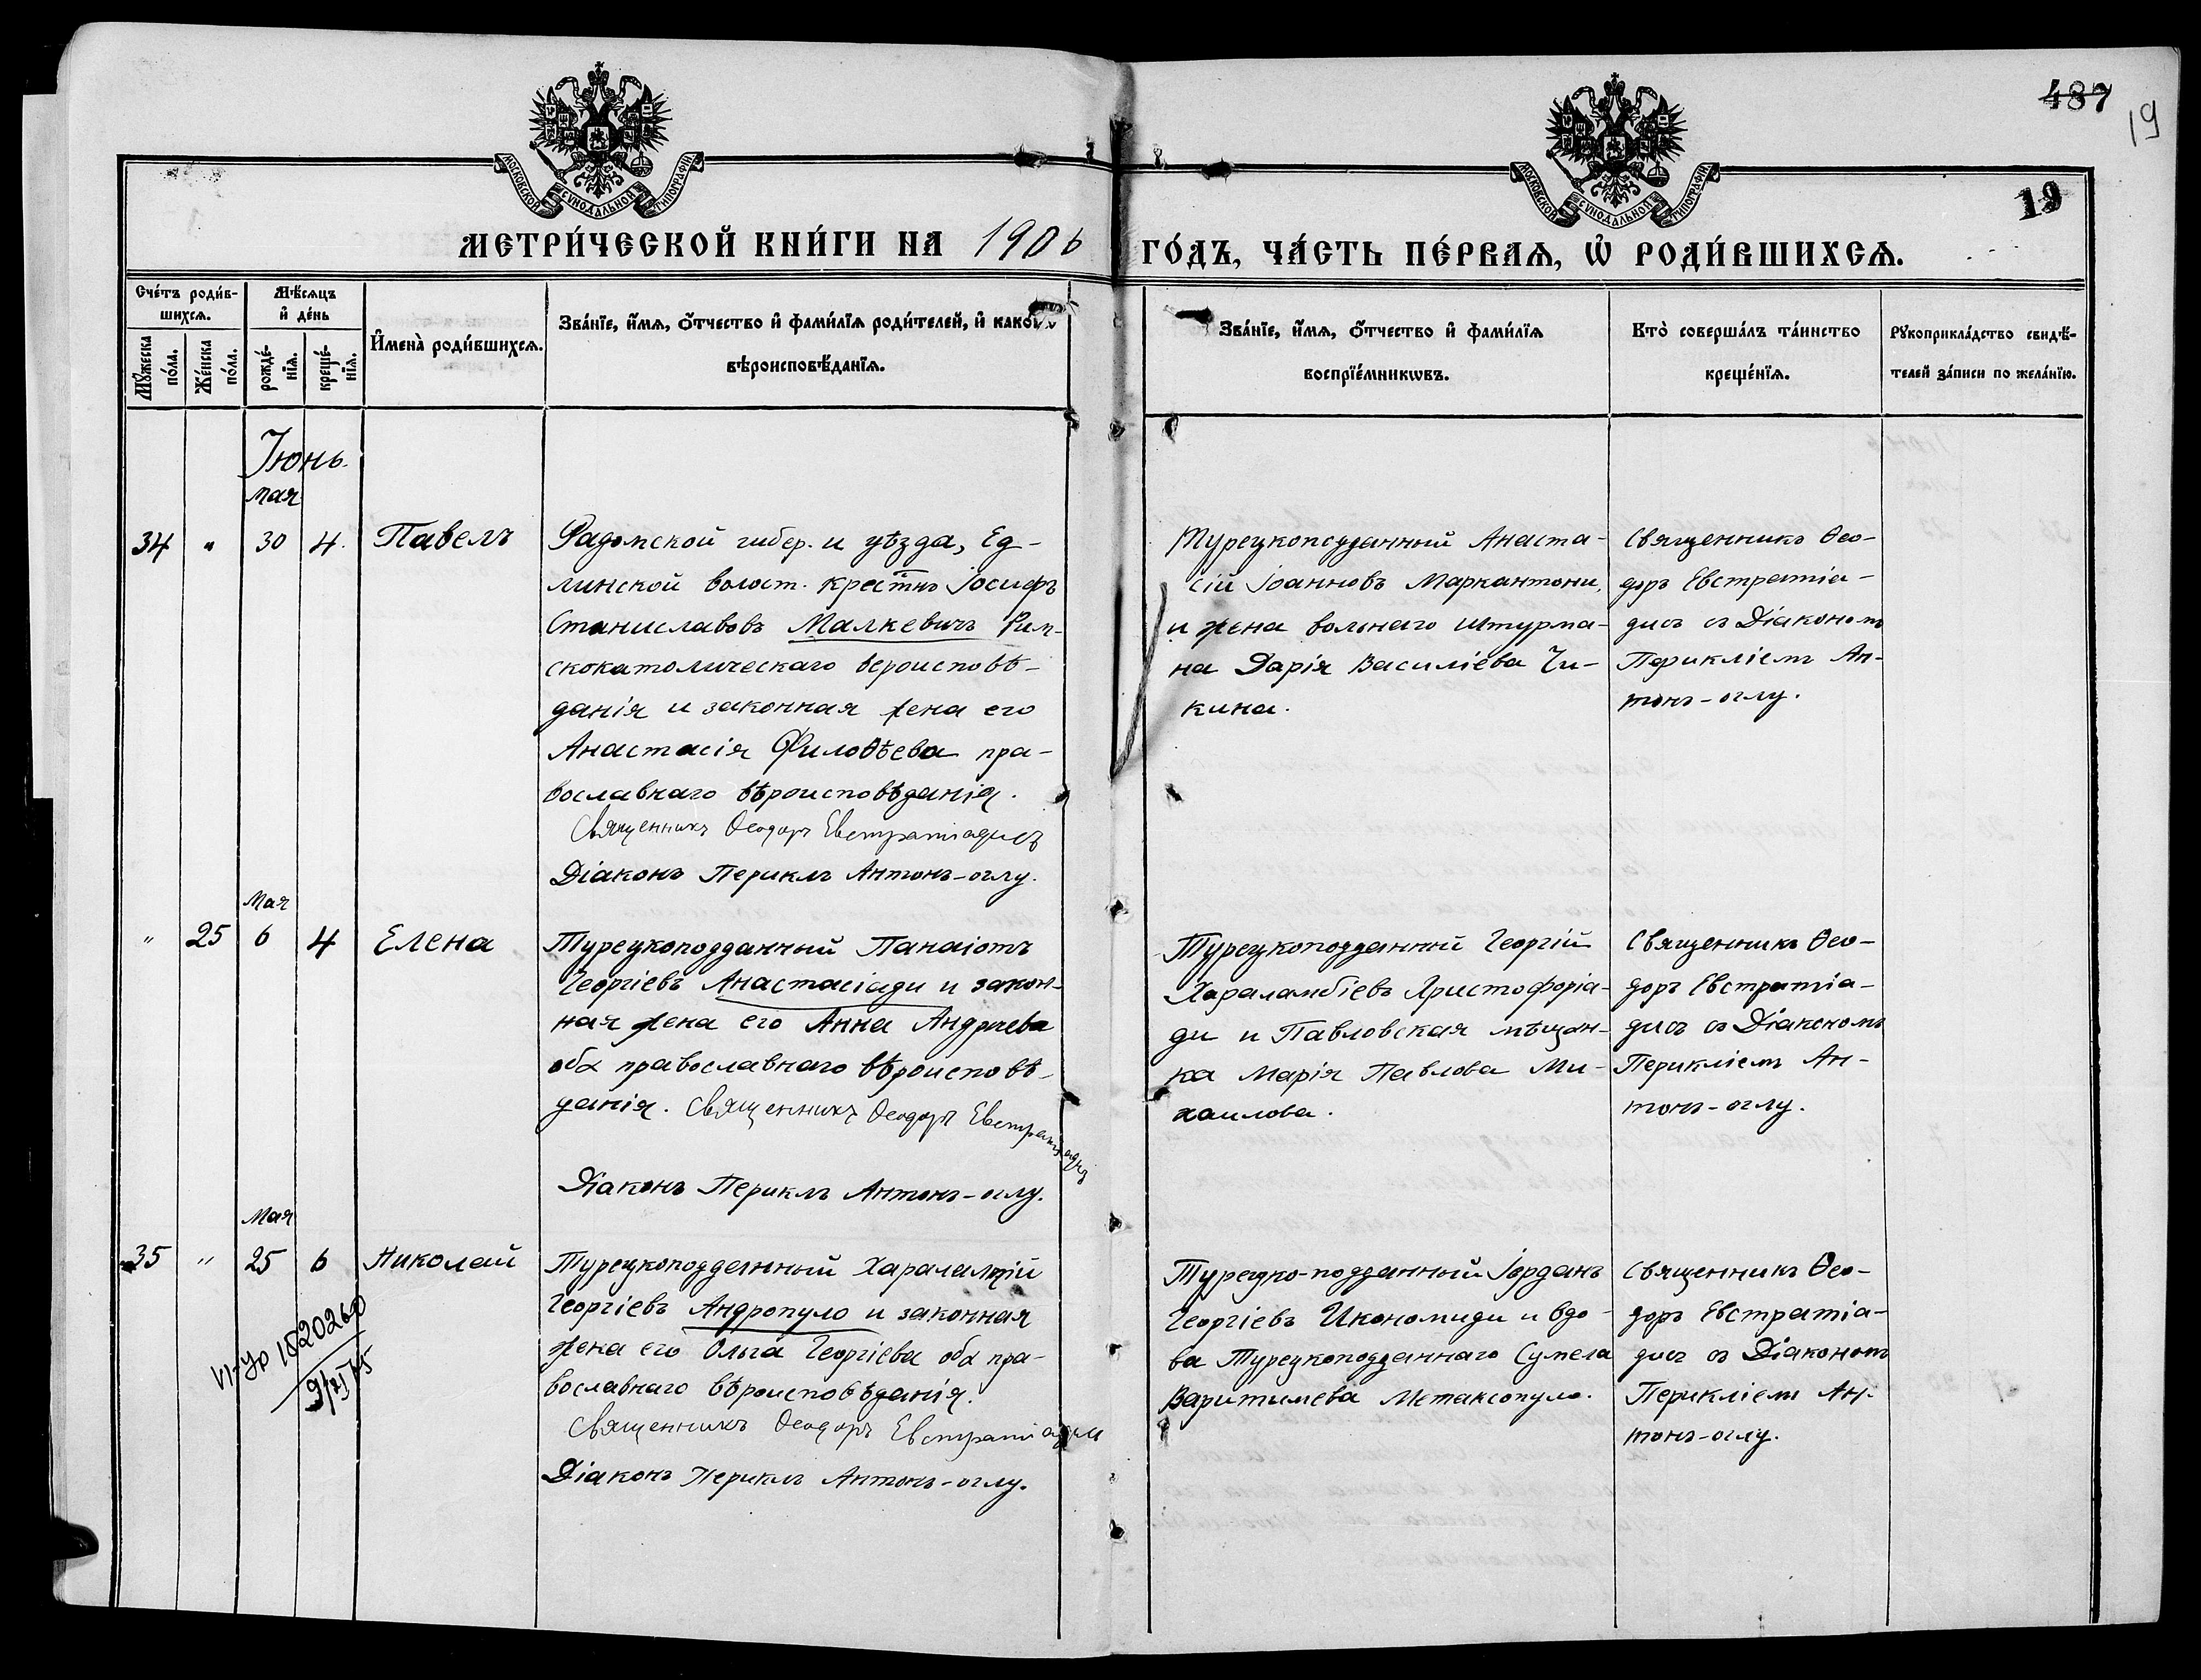 487
19
19
МОСКОВСКОЙ СѴНОДАЛЬНОЙ ТИПОГРАФІИ
МОСКОВСКОЙ СѴНОДАЛЬНОЙ ТИПОГРАФІИ
МЕТРИ́ЧЕСКОЙ КНИ́ГИ НА 1906 ГО́ДЪ, ЧА́СТЬ ПЕ́РВАѦ, Ѡ҆ РОДИ́ВШИХСѦ.
Сче́тъ роди́в-
шихсѧ.
Мꙋ́жеска
по́ла.
Же́нска
по́ла.
Мѣ́сѧцъ
и҆ де́нь
рожде́-
нїѧ.
креще́-
нїѧ.
И҆мена̀ роди́вшихсѧ.
Зва́нїе, и҆́мѧ, ѻ҆́тчество и҆ фами́лїѧ роди́телей, и҆
вѣроисповѣ́данїѧ.
Зва́нїе, и҆́мѧ, ѻ҆́тчество и҆ фами́лїѧ
воспрїе́мникѡвъ.
Кто̀ соверша́лъ та́инство
креще́нїѧ.
Рꙋкоприкла́дство свидѣ́-
телей за́писи по жела́нїю.
Іюнь.
мая
34 " 30 4. Павелъ
Радомской губер. и уѣзда, Ед-
линской волост. крестнъ Іосифъ
Станиславовъ Малкевичъ Рим-
скокатолическаго вероисповѣ-
данія и законная жена его
Анастасія Филоѳѣева пра-
вославнаго вѣроисповѣданія.
Священникъ Ѳеодоръ Евстратіадисъ
Діаконъ Периклъ Антонъ-оглу.
Турецкоподданный Анаста-
сій Іоанновъ Маркантони,
и жена вольнаго штурма-
на Дарія Василіева Чи-
кина.
Священникъ Ѳео-
доръ Евстратіа-
дисъ съ Діакономъ
Перикліемъ Ан-
тонъ-оглу.
Мая
" 25 6 4 Елена
Турецкоподданный Панаіотъ
Георгіевъ Анастасіади и закон-
ная жена его Анна Андреева
оба православнаго вѣроисповѣ-
данія. Священникъ Ѳеодоръ Евстратіадисъ
Діаконъ Периклъ Антонъ-оглу.
Турецкоподданный Георгій
Хараламбіевъ Христофоріа-
ди и Павловская мѣщан-
ка Марія Павлова Ми-
хаилова.
Священникъ Ѳео-
доръ Евстратіа-
дисъ съ Діакономъ
Перикліемъ Ан-
тонъ-оглу.
Мая
35 " 25 6 Николай
Турецкоподданный Харалампій
Георгіевъ Андропуло и законная
жена его Ольга Георгіева оба пра-
вославнаго вѣроисповѣданія.
Священникъ Ѳеодоръ Евстратіадисъ
Діаконъ Периклъ Антонъ-оглу.
Турецко-подданный Іорданъ
Георгіевъ Икономиди и вдо-
ва Турецкоподданнаго Сумела
Варитимева Метаксопуло.
Священникъ Ѳео-
доръ Евстратіа-
дисъ съ Діакономъ
Перикліемъ Ан-
тонъ-оглу.